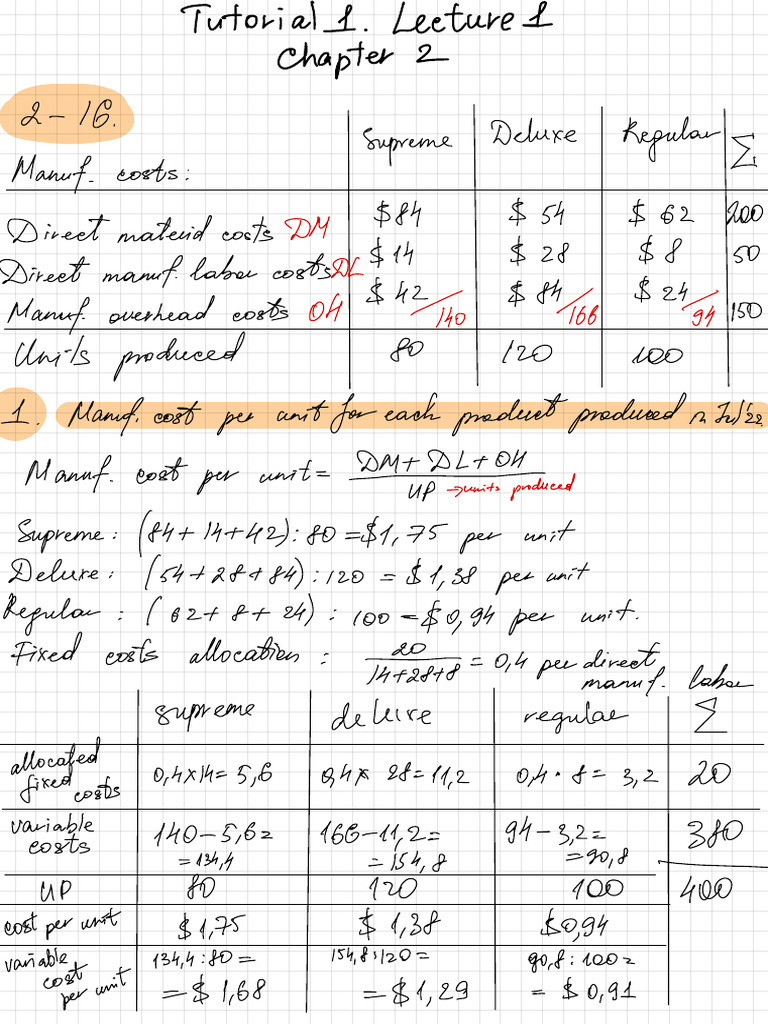 Tutorial 1. Lecture 1
Chapter 2
2-16.
Supreme Deluxe Regular Σ
Manuf. costs:
Direct material costs DM $84 $54 $62 200
Direct manuf. labor costs DL $14 $28 $8 50
Manuf. overhead costs OH $42/140 $84/166 $24/94 150
Units produced 80 120 100
1. Manuf. cost per unit for each product produced in Jul'22
Manuf. cost per unit = DM + DL + OH / UP → units produced
Supreme: (84+14+42):80 = $1,75 per unit
Deluxe: (54+28+84):120 = $1,38 per unit
Regular: (62+8+24): 100 = $0,94 per unit.
Fixed costs allocation: 20 / 14+28+8 = 0,4 per direct manuf. labor
supreme deluxe regular Σ
allocated fixed costs 0,4×14=5,6 0,4× 28=11,2 0,4·8=3,2 20
variable costs 140-5,6= =134,4 166-11,2= =154,8 94-3,2= =90,8 380
UP 80 120 100 400
cost per unit $1,75 $1,38 $0,94
variable cost per unit 134,4:80= =$1,68 154,8:120= =$1,29 90,8:100= =$0,91